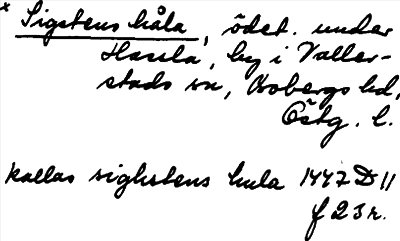 x Sigstens håla, ödet. under
Hassla, by i Valler-
stads sn, Bobergs hd,
Östg. l.
kallas sighstens hula 1447 D 11
f 23 r.